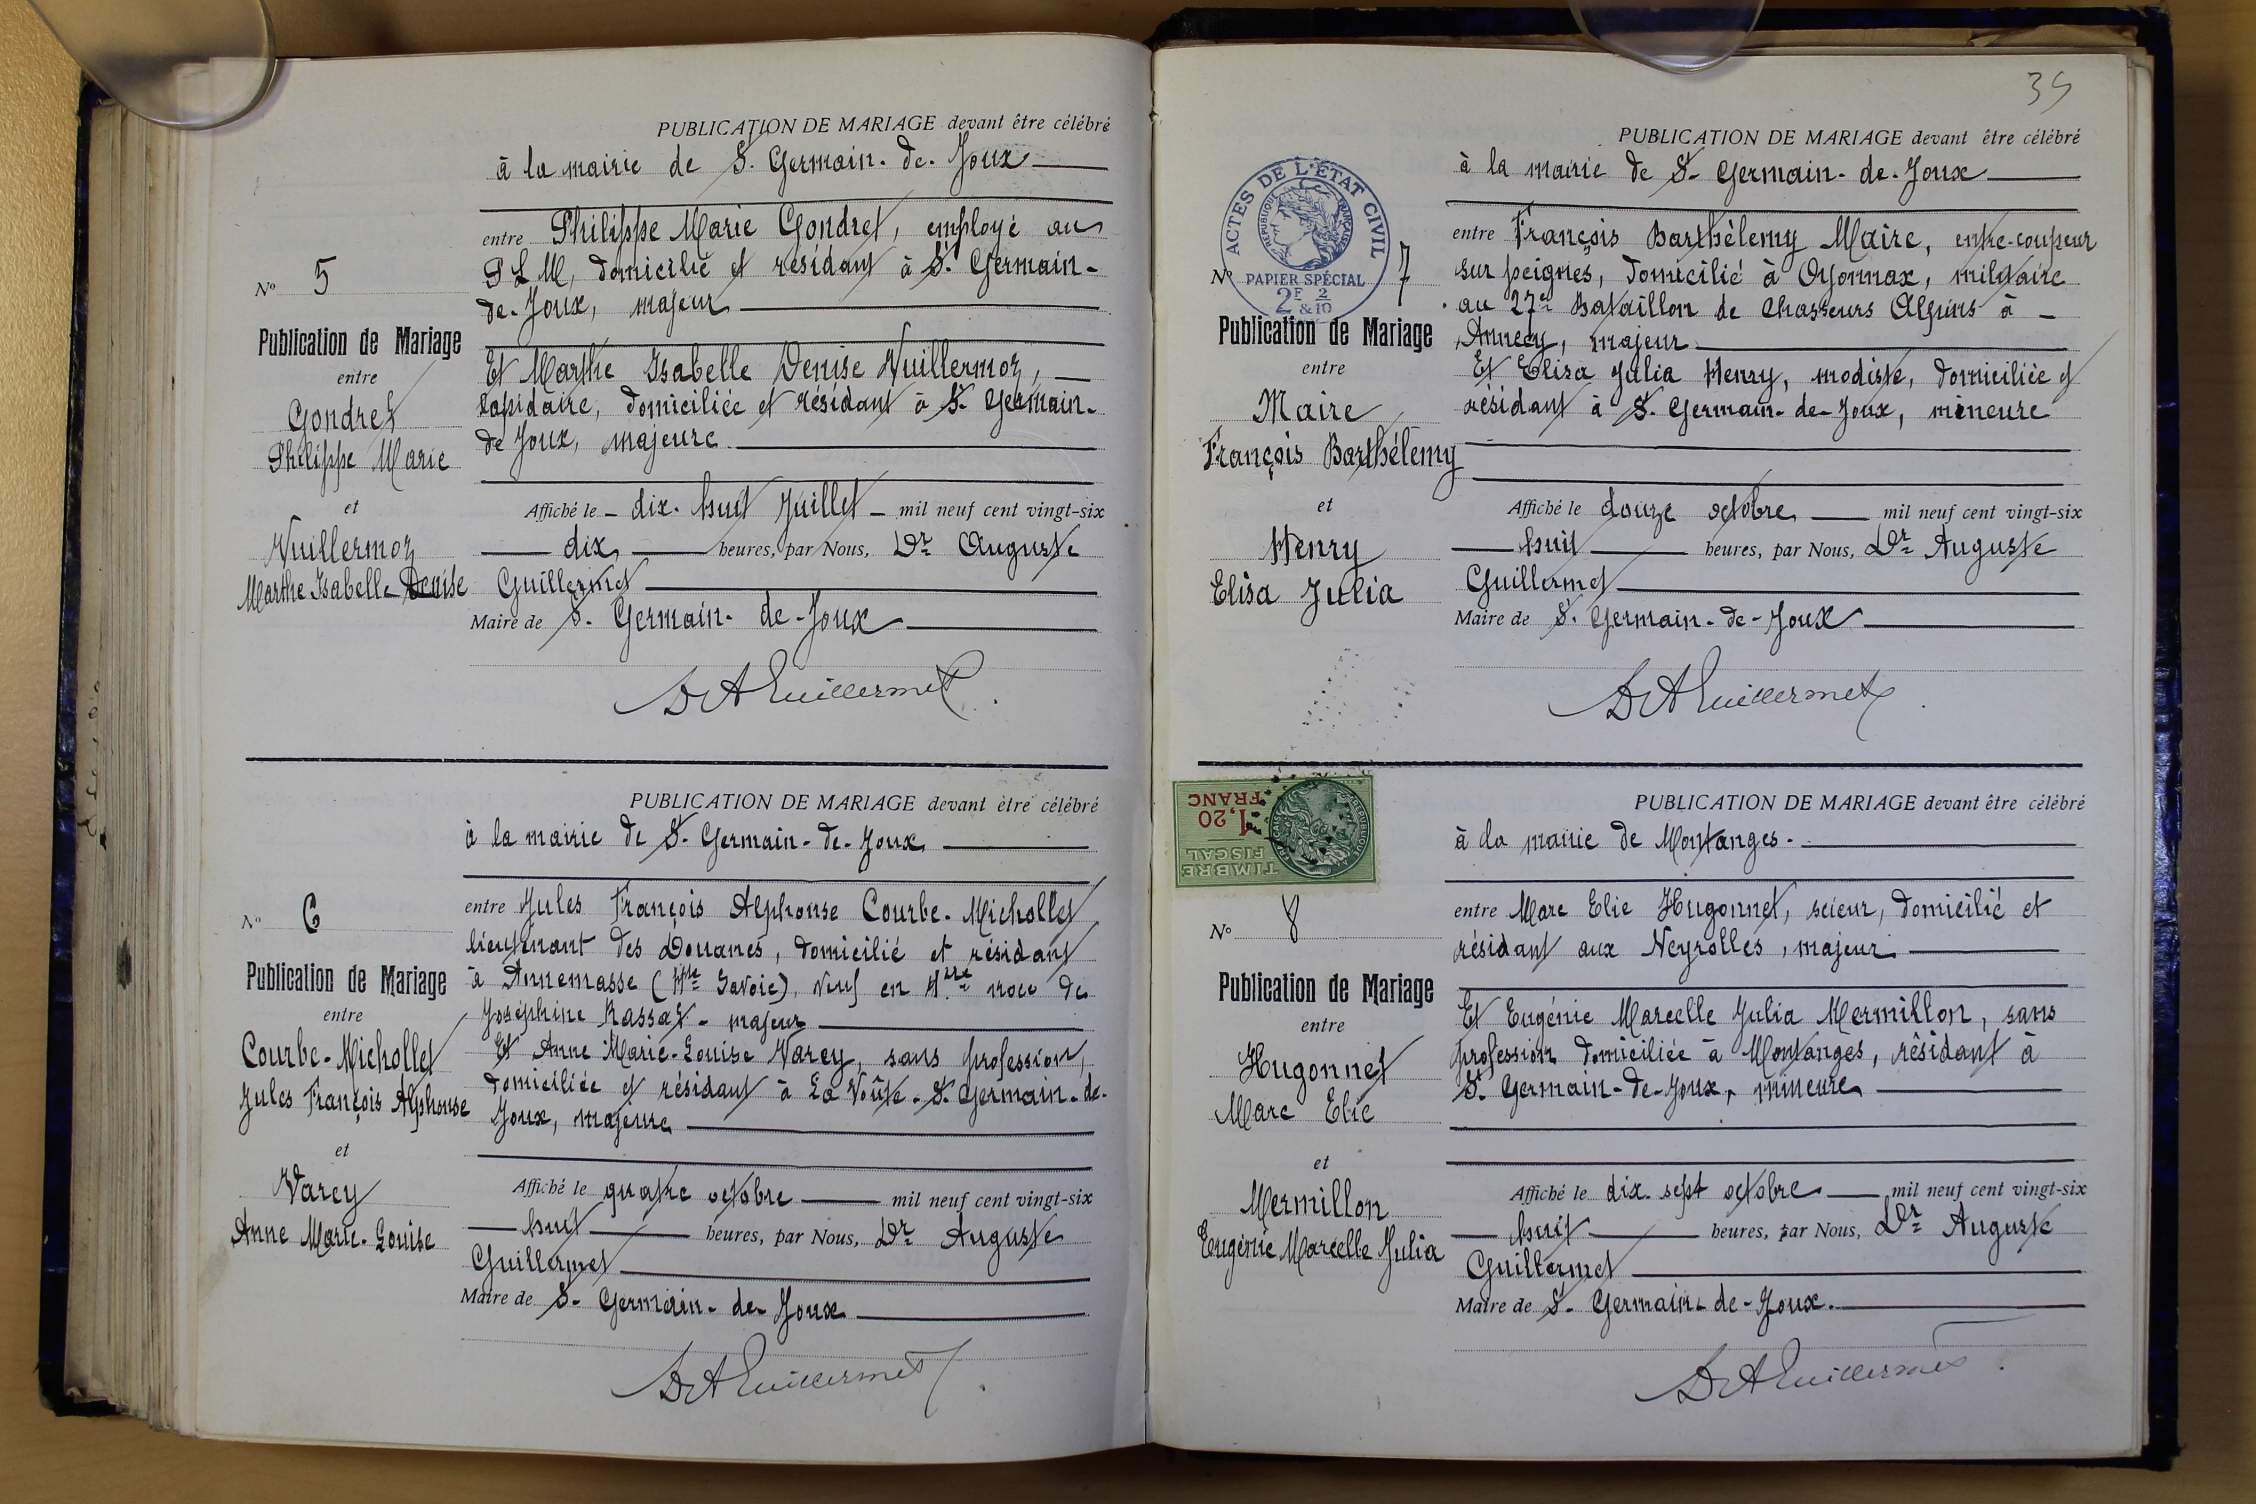 PUBLICATION DE MARIAGE devant être célébré
à la mairie de St. Germain-de-Joux
entre Philippe Marie Gondret, employé au
P L M, domicilié et résidant à St. Germain-
de-Joux, majeur
Et Marthe Isabelle Denise Vuillermoz,
lapidaire, domiciliée et résidant à St. Germain-
de Joux, majeure
Affiché le - dix-huit Juillet - mil neuf cent vingt-six
dix heures, par Nous, Dr Auguste
Guillermet
Maire de St. Germain-de-Joux
DrAGuillermet
No 5
Publication de Mariage
entre
Gondret
Philippe Marie
et
Vuillermoz
Marthe Isabelle Denise
PUBLICATION DE MARIAGE devant être célébré
à la mairie de St. Germain-de-Joux
entre Jules François Alphonse Courbe-Michollet
lieutenant des Douanes, domicilié et résidant
à Annemasse (Hte Savoie), veuf en
Joséphine Rassat - majeur
Et Anne Marie-Louise Varcy, sans profession,
domiciliée et résidant à La Voûte-St. Germain-de-
Joux, majeure
Affiché le quatre octobre mil neuf cent vingt-six
huit heures, par Nous, Dr Auguste
Guillermet
Maire de St. Germain-de-Joux
DrAGuillermet
No 6
Publication de Mariage
entre
Courbe-Michollet
Jules François Alphonse
et
Varcy
Anne Marie-Louise
PUBLICATION DE MARIAGE devant être célébré
à la mairie de St. Germain-de-Joux
entre François Barthélemy Maire, entre-coupeur
sur peignes, domicilié à Oyonnax, militaire
au 27e Bataillon de Chasseurs Alpins à -
Annecy, majeur
Et Elisa Julia Henry, modiste, domiciliée et
résidant à St. Germain-de-Joux, mineure
Affiché le douze octobre mil neuf cent vingt-six
huit heures, par Nous, Dr Auguste
Guillermet
Maire de St. Germain-de-Joux
DrAGuillermet
ACTES DE L'ÉTAT CIVIL
RÉPUBLIQUE FRANÇAISE
PAPIER SPÉCIAL
2F & 2/10
No 7
Publication de Mariage
entre
Maire
François Barthélemy
et
Henry
Elisa Julia
PUBLICATION DE MARIAGE devant être célébré
à la mairie de Montanges.
entre Marc Elie Hugonnet, scieur, domicilié et
résidant aux Neyrolles, majeur
Et Eugénie Marcelle Julia Mermillon, sans
profession domiciliée à Montanges, résidant à
St. Germain-de-Joux, mineure
Affiché le dix-sept octobre mil neuf cent vingt-six
huit heures, par Nous, Dr Auguste
Guillermet
Maire de St. Germain-de-Joux.
DrAGuillermet
TIMBRE
FISCAL
1,20
FRANC
No 8
Publication de Mariage
entre
Hugonnet
Marc Elie
et
Mermillon
Eugénie Marcelle Julia